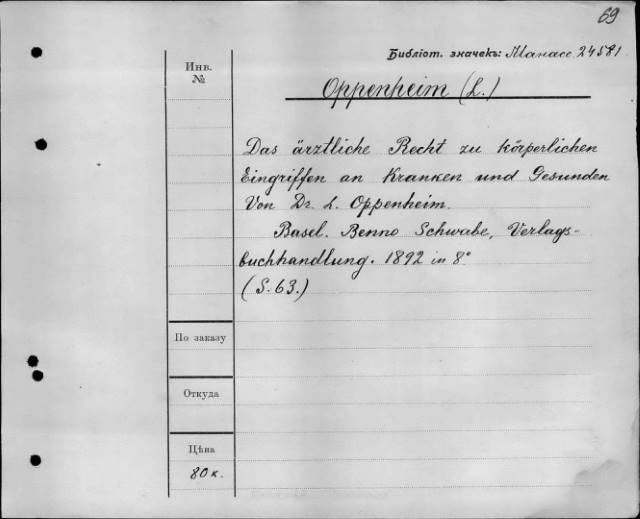 69
Библіот. значекъ: Манасс 24581
Инв.
№
Oppenheim (L.)
Das ärztliche Recht zu körperlichen
Eingriffen an Kranken und Gesunden
Von Dr. L. Oppenheim.
Basel. Benno Schwabe, Verlags-
buchhandlung. 1892 in 8°
(S. 63.)
По заказу
Откуда
Цѣна
80 к.